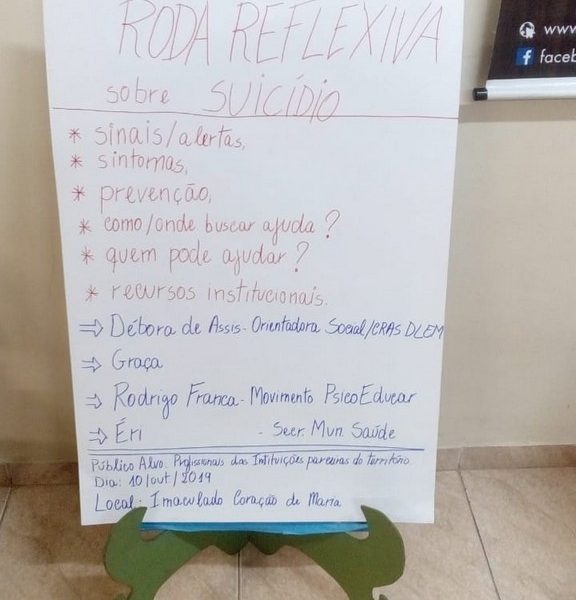 RODA REFLEXIVA
sobre SUICÍDIO
* sinais/alertas,
* sintomas,
* prevenção,
* como/onde buscar ajuda?
* quem pode ajudar?
* recursos institucionais.
⇒ Débora de Assis - Orientadora Social/CRAS DLEM
⇒ Graça
⇒ Rodrigo Franca - Movimento PsicoEducar
⇒ Éri - Secr. Mun. Saúde
Público Alvo: Profissionais das Intituições parceiras do território.
Dia: 10/out/2019
Local: Imaculado Coração de Maria
www
faceb